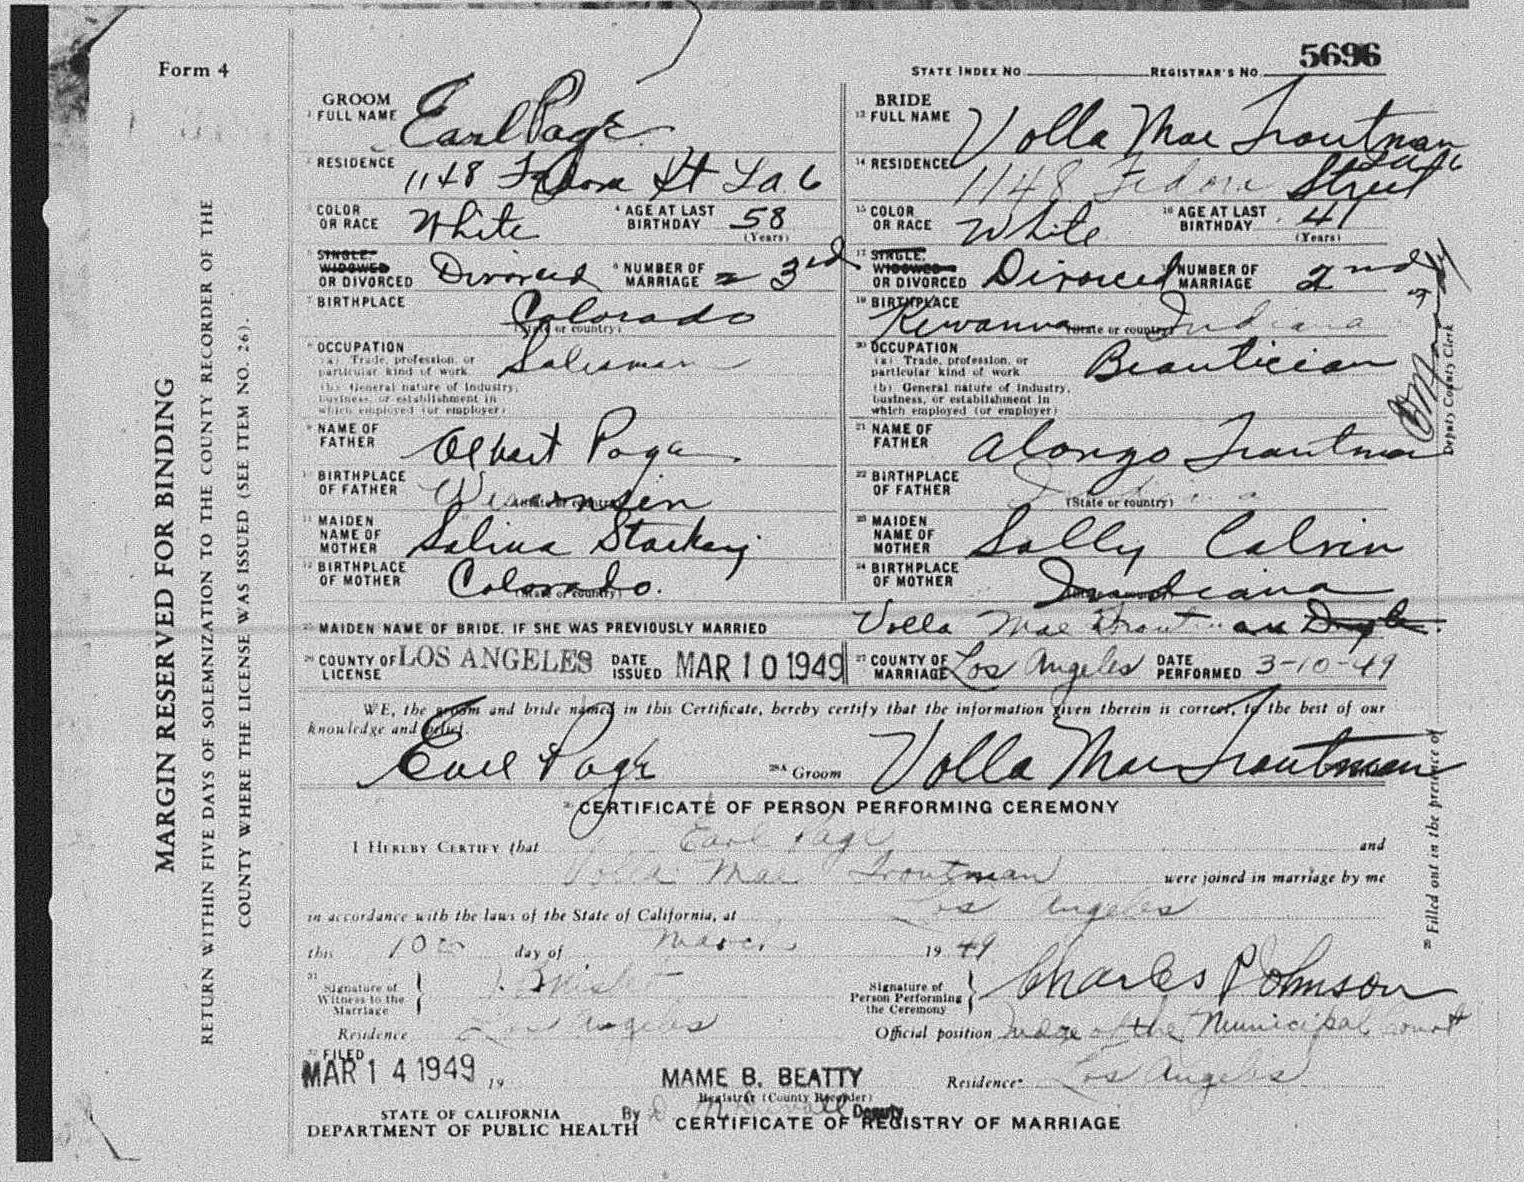 5696
Form 4
STATE INDEX NO. REGISTRAR'S NO.
GROOM
1 FULL NAME Earl Page
BRIDE
13 FULL NAME Volla Mae Troutman
2 RESIDENCE 1148 Fedora St La 6
14 RESIDENCE 1148 Fedora Street La 6
3 COLOR OR RACE White 4 AGE AT LAST BIRTHDAY 58 (Years)
15 COLOR OR RACE White 16 AGE AT LAST BIRTHDAY 41 (Years)
5 SINGLE, WIDOWED OR DIVORCED Divorced 6 NUMBER OF MARRIAGE 3rd
17 SINGLE, WIDOWED OR DIVORCED Divorced NUMBER OF MARRIAGE 2nd
7 BIRTHPLACE Colorado (State or country)
19 BIRTHPLACE Kewanna Indiana (State or country)
8 OCCUPATION Salesman
(a) Trade, profession, or
particular kind of work
(b) General nature of Industry,
business, or establishment in
which employed (or employer)
20 OCCUPATION Beautician
(a) Trade, profession, or
particular kind of work
(b) General nature of Industry,
business, or establishment in
which employed (or employer)
9 NAME OF FATHER Albert Page
21 NAME OF FATHER Alonzo Troutman
10 BIRTHPLACE OF FATHER Wisconsin
22 BIRTHPLACE OF FATHER (State or country)
11 MAIDEN NAME OF MOTHER Salina
23 MAIDEN NAME OF MOTHER Sally Calvin
12 BIRTHPLACE OF MOTHER Colorado. (State or country)
24 BIRTHPLACE OF MOTHER Indiana
25 MAIDEN NAME OF BRIDE, IF SHE WAS PREVIOUSLY MARRIED Volla Mae Troutman
26 COUNTY OF LICENSE LOS ANGELES DATE ISSUED MAR 10 1949
27 COUNTY OF MARRIAGE Los Angeles DATE PERFORMED 3-10-49
WE, the groom and bride named in this Certificate, hereby certify that the information given therein is correct, to the best of our
knowledge and belief.
Earl Page 28A Groom Volla Mae Troutman
CERTIFICATE OF PERSON PERFORMING CEREMONY
I HEREBY CERTIFY that Earl Page and
Volla Mae Troutman were joined in marriage by me
in accordance with the laws of the State of California, at Los Angeles
this 10 day of March 1949
31 Signature of Witness to the Marriage
Signature of Person Performing the Ceremony Charles P Johnson
Residence Los Angeles
Official position Judge of the Municipal Court
FILED
MAR 14 1949 , 19
MAME B. BEATTY
Registrar (County Recorder)
Residence Los Angeles
By Deputy
STATE OF CALIFORNIA
DEPARTMENT OF PUBLIC HEALTH CERTIFICATE OF REGISTRY OF MARRIAGE
MARGIN RESERVED FOR BINDING
RETURN WITHIN FIVE DAYS OF SOLEMNIZATION TO THE COUNTY RECORDER OF THE
COUNTY WHERE THE LICENSE WAS ISSUED (SEE ITEM NO. 26).
29 Filled out in the presence of
Deputy County Clerk